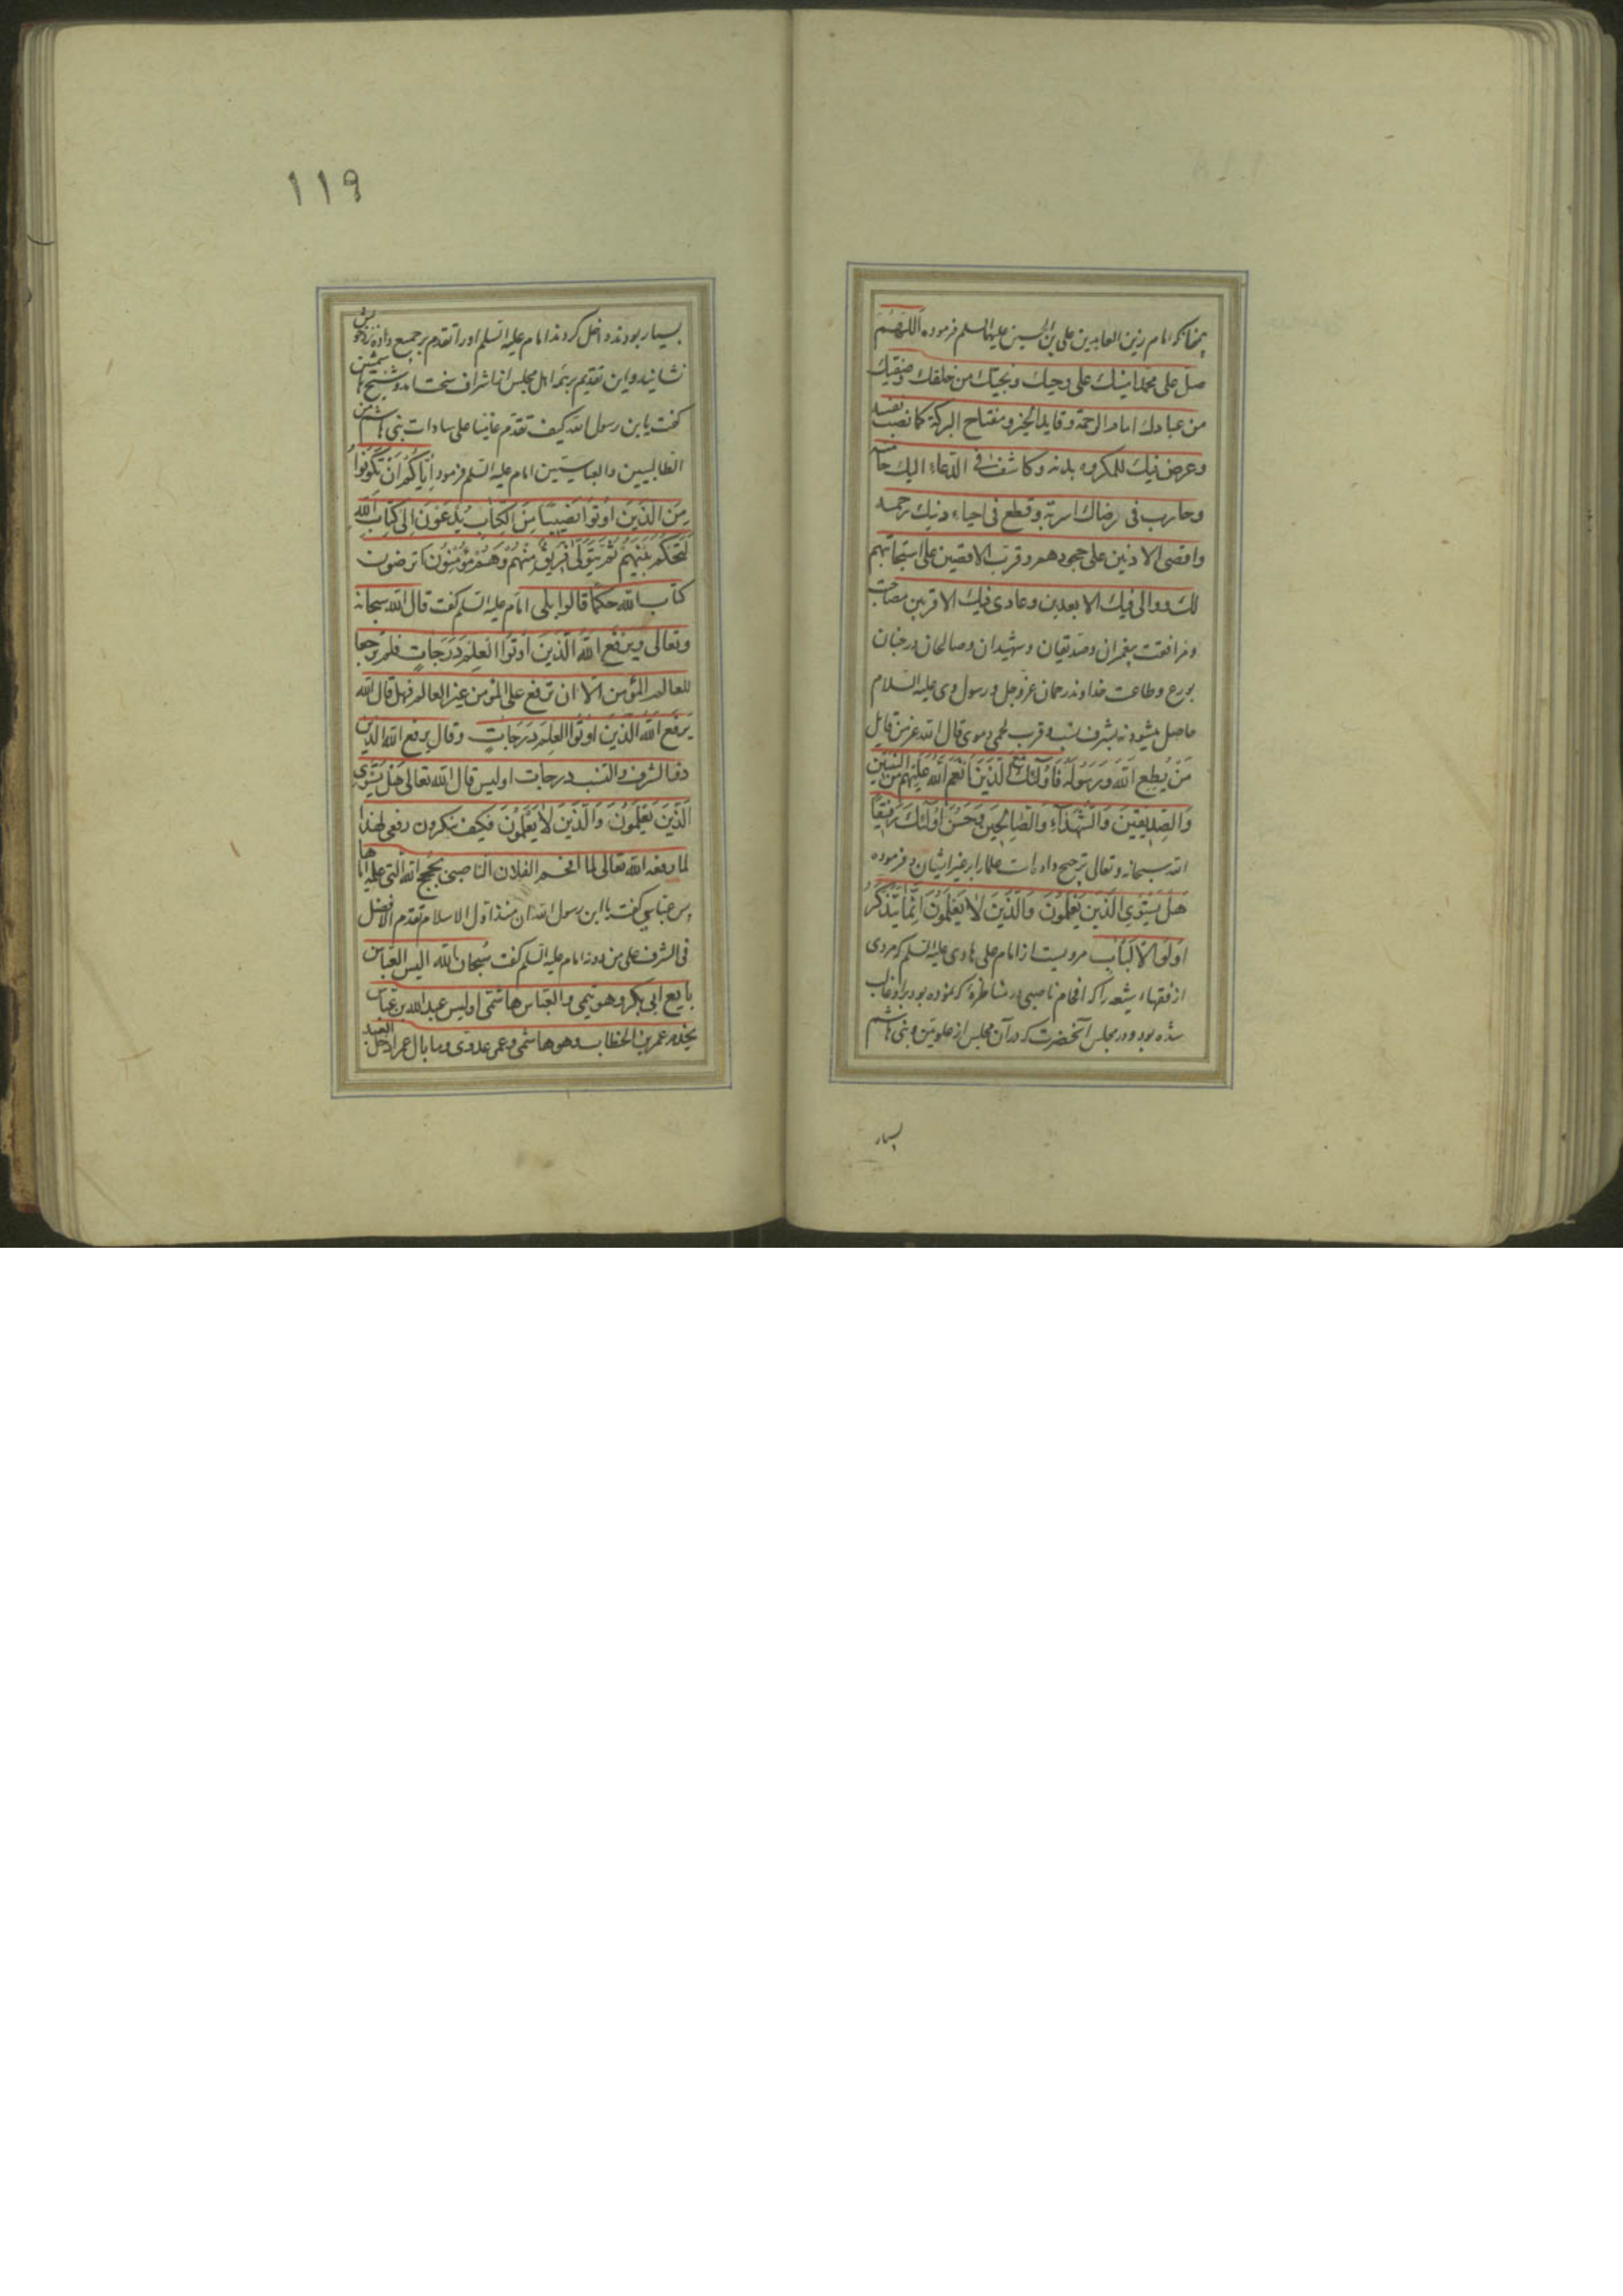 چنانکه امام زین العابدین علی بن الحسین علیهما السلم فرموده اللهم
صل علی محمد امینک علی وحیک و نجیبک من خلقک وصفیک
من عبادک امام الرحمة وقاید الخیر و مفتاح البرکة کما نصب نفسه
وعرض فیک للمکروه بدنه وکاشف فی الدعاء الیک حامته
وحارب فی رضاک اسرته وقطع فی احیاء دینک رحمه
واقصی الادنین علی جحودهم وقرب الاقصین علی استجابتهم
لک ووالی فیک الابعدین وعادی فیک الاقربین مصاحبت
ومرافقت پیغمبران وصدیقان وشهیدان وصالحان در جنان
بورع وطاعت خداوند رحمان عز وجل ورسول وی علیه السلام
حاصل میشود نه بشرف نسب و قرب لحمی ودموی قال الله عز من قایل
مَنْ يُطِعِ اللّٰهَ وَرَسُولَهُ فَاُولٰئِكَ مَعَ الَّذِينَ اَنْعَمَ اللّٰهُ عَلَيْهِمْ مِنَ النَّبِيِّينَ
وَالصِّدِّيقِينَ وَالشُّهَدَآءِ وَالصَّالِحِينَ وَحَسُنَ اُولٰئِكَ رَفِيقًا
الله سبحانه وتعالی ترجیح داده است علما را بر غیر ایشان و فرموده
هَلْ يَسْتَوِى الَّذِينَ يَعْلَمُونَ وَالَّذِينَ لَا يَعْلَمُونَ اِنَّمَا يَتَذَكَّرُ
اُولُوا الْاَلْبَابِ مرویست از امام علی هادی علیه السلم که مردی
از فقهاء شیعه را که افحام ناصبی در مناظرهٔ که نموده بود و براو غالب
شده بود و در مجلس آنحضرت که در آن مجلس از علویین و بنی هاشم
بسیار
١١٩
بسیار بودند داخل کردند امام علیه السلم او را تقدم بر جمیع داده نزد خویش
نشانید و این تقدیم بر همه اهل مجلس از اشراف سخت آمد و شیخ هاشمیین
گفت یا بن رسول الله کیف تقدم عامیا علی سادات بنی هاشم من
الطالبیین والعباسیین امام علیه السلم فرمود اِيَّاكُمْ اَنْ تَكُونُوا
مِنَ الَّذِينَ اُوتُوا نَصِيبًا مِنَ الْكِتَابِ يُدْعَوْنَ اِلَى كِتَابِ اللّٰهِ
لِيَحْكُمَ بَيْنَهُمْ ثُمَّ يَتَوَلَّى فَرِيقٌ مِنْهُمْ وَهُمْ مُؤْمِنُونَ اترضون
کتاب الله حکما قالوا بلی امام علیه السلم گفت قال الله سبحانه
وتعالی ویَرْفَعُ اللّٰهُ الَّذِينَ اُوتُوا الْعِلْمَ دَرَجَاتٍ فلم یرجعها
للعالم المؤمن الا ان ترفع علی المؤمن غیر العالم فهل قال الله
يَرْفَعُ اللّٰهُ الَّذِينَ اُوتُوا الْعِلْمَ دَرَجَاتٍ وقال یرفع الله الذین
الشرف والنسب درجات اولیس قال الله تعالی هَلْ يَسْتَوِى
الَّذِينَ يَعْلَمُونَ وَالَّذِينَ لَا يَعْلَمُونَ فکیف تنکرون رفعی لهذا
لما رفعه الله تعالی لما افحم الفلان الناصبی بحجج الله التی علمه ایاها
پس عباسی گفت یا ابن رسول الله ان منذ اول الاسلام تقدم الافضل
فی الشرف علی من دونه امام علیه السلم گفت سُبحان الله الیس العباس
بایع ابی بکر وهو تیمی والعباس هاشمی اولیس عبد الله بن عباس
یخدم عمر بن الخطاب وهو هاشمی وعمر عدوی وما بال عمر ادخل البعید